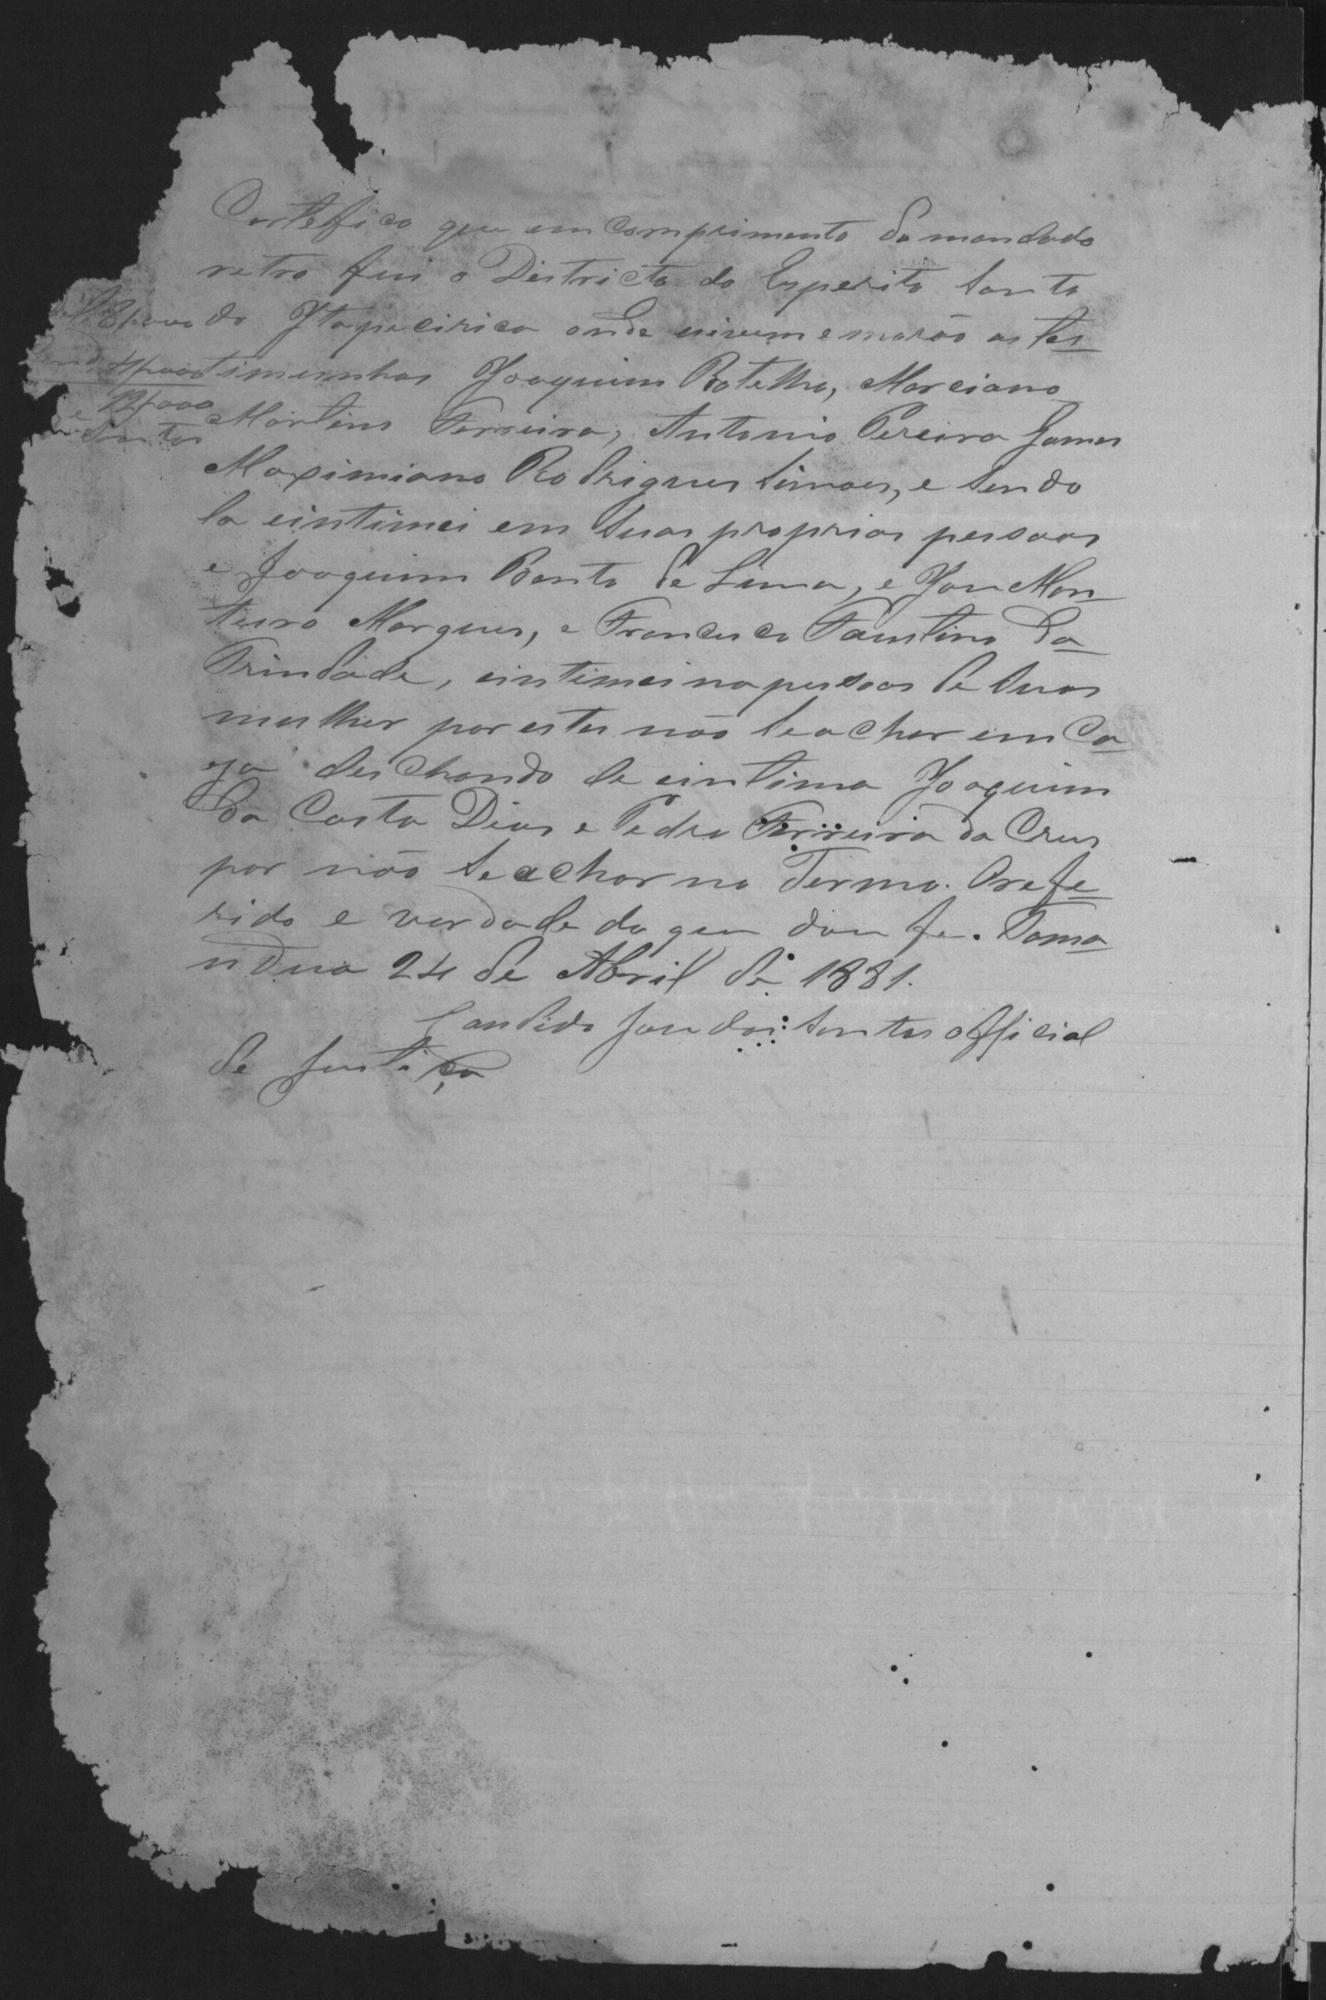 Certefico que em comprimento do mandado
retro fui o Districto do Esperito Santo
do Itapecirica onde vivem e morão as tes
timunhas Joaquim Botelho, Marciano
Martins Ferreira, Antonio Pereira Gomes
Maximiano Rodrigues Simoes, e sendo
la eintimei em suas proprias pessoas
e Joaquim Bento de Lima, e José Mon
teiro Marques, e Francisco Faustino da
Trindade, eintimei na pessoas de suas
mulher por estes não se achar em ca
za deichando de eintima Joaquim
da Costa Dias e Pedro Ferreira da Crus
por não se achar no Termo. O refe
rido e verdade do que dou fe. Tama
ndua 24 de Abril de 1881.
Candido José dos Santos official
de Justiça
8$000
4$000
12$000
Santos